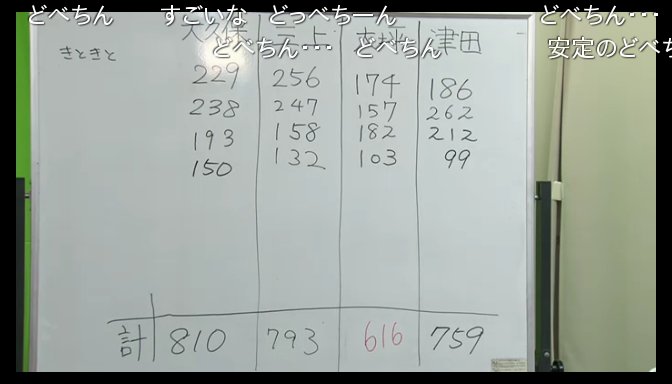 どべちん すごいな どっべちーん どべちん・・・
どべちん・・・ どべちん 安定のどべち
大久保 三上 古坪 津田
きときと
229 256 174 186
238 247 157 262
193 158 182 212
150 132 103 99
計 810 793 616 759